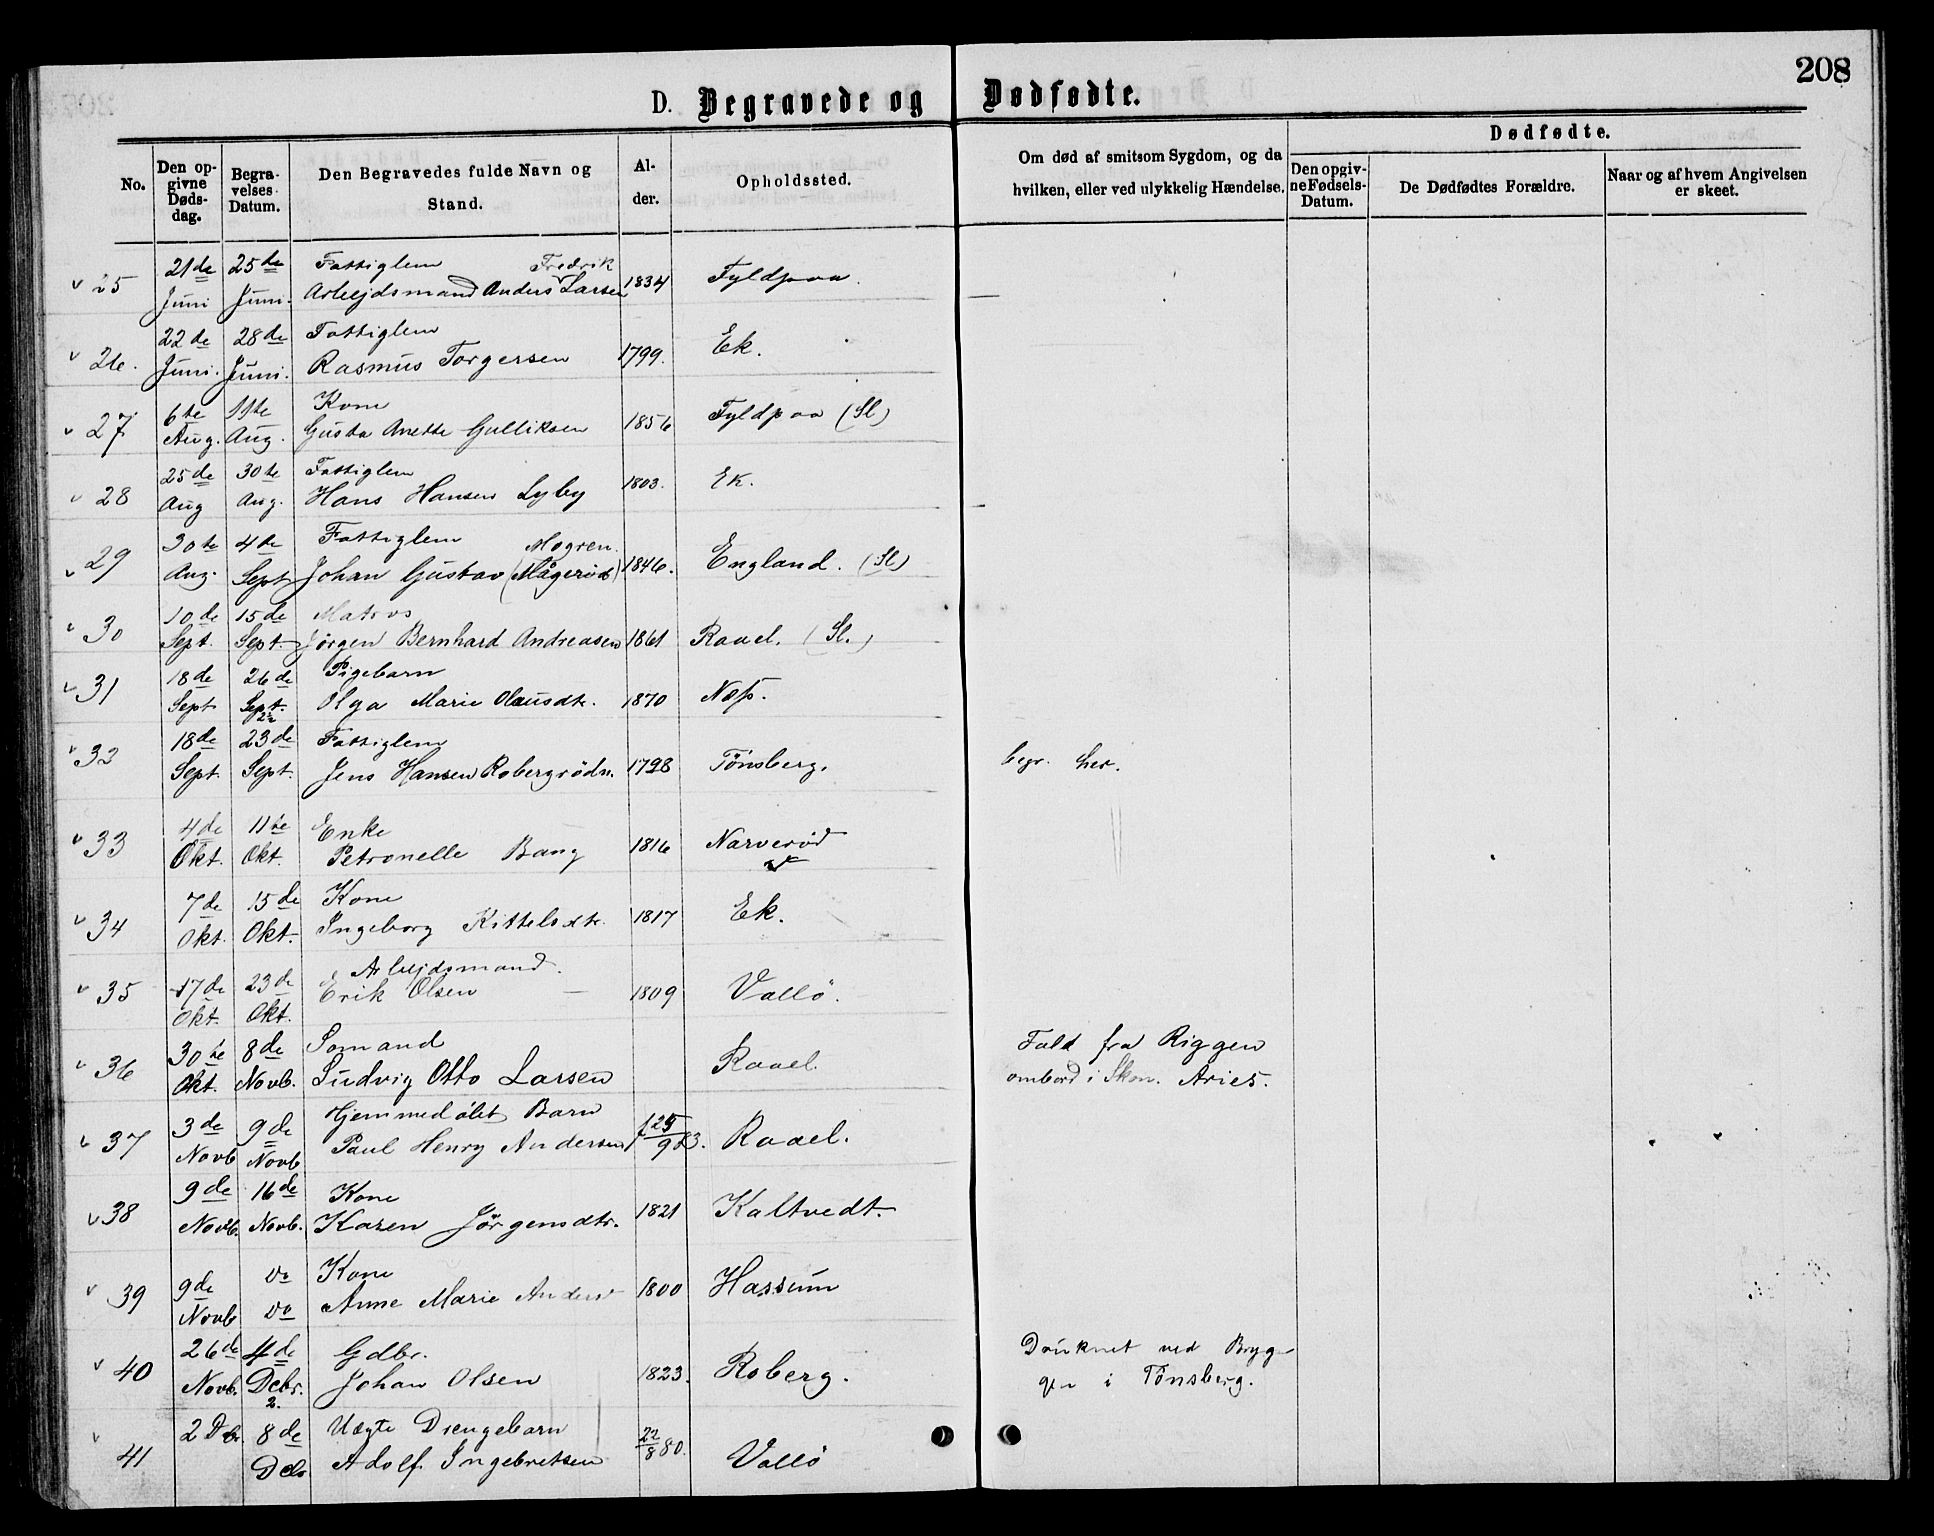 208
D. Begravede og Dødfødte.
No.
Den opgivne Dødsdag.
Begravelses Datum.
Den Begravedes fulde Navn og Stand.
Alder.
Opholdssted.
Om død af smitsom Sygdom, og da hvilken, eller ved ulykkelig Hændelse.
Dødfødte.
Den opgivne Fødsels-Datum.
De Dødfødtes Forældre.
Naar og af hvem Angivelsen er skeet.
25 21de Juni 25te Juni. Fattiglem Arbejdsmand Anders Fredrik Larsen 1834 Fyldpaa. —
26. 22de Juni. 28de Juni. Fattiglem Rasmus Torgersen 1799. Ek.
27 6te Aug. 11te Aug. Kone Gusta Anette Gulliksen 1856 Fyldpaa (Sl)
28 25de Aug 30te Aug. Fattiglem Hans Hansen Lyby 1803. Ek. —
29 30te Aug. 4de Sept Fattiglem Johan Gustav Mogren. (Mågeröd) 1846. England. (Sl)
30 10de Sept. 15de Sept. Matros Jörgen Bernhard Andreasen 1861 Raael. (Sl.)
31 18de Sept 26de Sept. Pigebarn Olga Marie Olausdtr. 1870 Næss.
32 18de Sept. 22 23de Sept. Fattiglem Jens Hansen Robergrödn. 1798 Tönsberg. begr. her.
33 4de Okt. 11te Okt. Enke Petronelle Bang 1816 Narveröd
34 7de Okt. 15de Okt. Kone Ingeborg Kittelsdtr. 1817 Ek.
35 17de Okt. 23de Okt. Arbejdsmand. Erik Olsen — 1809 Vallö.
36 30te Okt. 8de Novb. Sømand Ludvig Otto Larsen Raael. Fald fra Riggen ombord i Skon. Aries.
37 3de Novb 9de Novb Hjemmedöbt Barn Paul Henry Andersen f 25/9 83. Raael.
38 9de Novb. 16de Novb. Kone Karen Jörgensdtr. 1821 Kaltvedt.
39 9de Novb. Do Do Kone Anne Marie Andersd 1800 Hassum
40 26de Novb. 4de Debr. Gdbr. Johan Olsen 1823. Roberg. Druknet ved Bryggen i Tönsberg.
41 2 Dbr. 2. 8de Deb Uægte Drengebarn Adolf Ingebretsen 22/8 80. Vallö